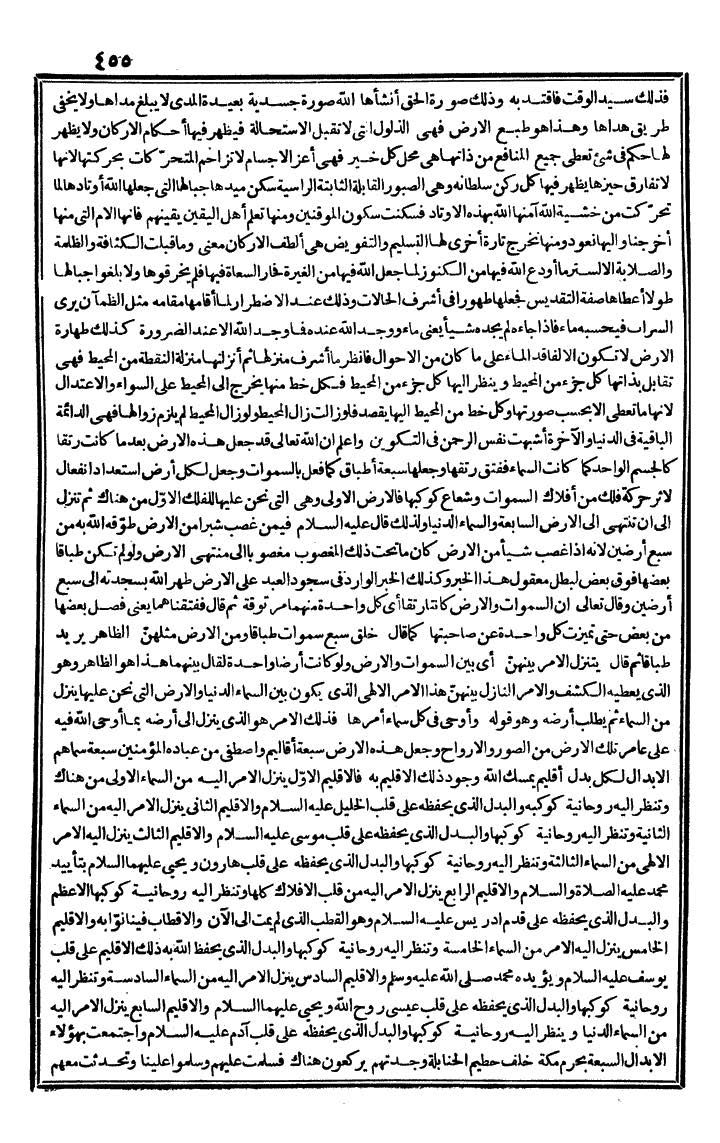 ٤٥٥
فذلك سيد الوقت فاقتد به وذلك صورة الحق أنشأها الله صورة جسدية بعيدة المدى لا يبلغ مداها ولا يخفى
طريق هداها وهذا هو طبع الارض فهى الذلول التى لا تقبل الاستحالة فيظهر فيها أحكام الاركان ولا يظهر
لها حكم فى شئ تعطى جميع المنافع من ذاتها هى محل كل خير فهى أعز الاجسام لا تزاحم المتحركات بحركتها لانها
لا تفارق حيزها يظهر فيها كل ركن سلطانه وهى الصبور القابلة الثابتة الراسية سكن ميدها جبالها التى جعلها الله أوتادها لما
تحركت من خشية الله آمنها الله بهذه الاوتاد فسكنت سكون الموقنين ومنها تعلم أهل اليقين يقينهم فانها الام التى منها
أخرجنا واليها نعود ومنها نخرج تارة أخرى لها التسليم والتفويض هى ألطف الاركان معنى وما قبلت الكثافة والظلمة
والصلابة الا لستر ما أودع الله فيها من الكنوز لما جعل الله فيها من الغيرة فحار السعاة فيها فلم يخرقوها ولا بلغوا جبالها
طولا أعطاها صفة التقديس فجعلها طهورا فى أشرف الحالات وذلك عند الاضطرار لما أقامها مقامه مثل الظمآن يرى
السراب فيحسبه ماء فاذا جاءه لم يجده شيأ يعنى ماء ووجد الله عنده فما وجد الله الا عند الضرورة كذلك طهارة
الارض لا تكون الا لفاقد الماء على ما كان من الاحوال فانظر ما أشرف منزلها ثم أنزلتها منزلة النقطة من المحيط فهى
تقابل بذاتها كل جزء من المحيط وينظر اليها كل جزء من المحيط فكل خط منها يخرج الى المحيط على السواء والاعتدال
لانها ما تعطى الا بحسب صورتها وكل خط من المحيط اليها يقصد فلو زالت زال المحيط ولو زال المحيط لم يلزم زوالها فهى الدائمة
الباقية فى الدنيا والآخرة أشبهت نفس الرحمن فى التكوين واعلم ان الله تعالى قد جعل هذه الارض بعد ما كانت رتقا
كالجسم الواحد كما كانت السماء ففتق رتقها وجعلها سبعة أطباق كما فعل بالسموات وجعل لكل أرض استعداد انفعال
لاثر حركة فلك من أفلاك السموات وشعاع كوكبها فالارض الاولى وهى التى نحن عليها للفلك الاول من هناك ثم تنزل
الى ان تنتهى الى الارض السابعة والسماء الدنيا ولذلك قال عليه السلام فيمن غصب شبرا من الارض طوقه الله به من
سبع أرضين لانه اذا غصب شيأ من الارض كان ما تحت ذلك المغصوب مغصوبا الى منتهى الارض ولو لم تكن طباقا
بعضها فوق بعض لبطل معقول هذا الخبر وكذلك الخبر الوارد فى سجود العبد على الارض طهر الله بسجدته الى سبع
أرضين وقال تعالى ان السموات والارض كانتا رتقا أى كل واحدة منهما مرتوقة ثم قال ففتقناهما يعنى فصل بعضها
من بعض حتى تميزت كل واحدة عن صاحبتها كما قال خلق سبع سموات طباقا ومن الارض مثلهن الظاهر يريد
طباقا ثم قال يتنزل الامر بينهن أى بين السموات والارض ولو كانت أرضا واحدة لقال بينهما هذا هو الظاهر وهو
الذى يعطيه الكشف والامر النازل بينهن هذا الامر الالهى الذى يكون بين السماء الدنيا والارض التى نحن عليها ينزل
من السماء ثم يطلب أرضه وهو قوله وأوحى فى كل سماء أمرها فذلك الامر هو الذى ينزل الى أرضه بما أوحى الله فيه
على عامر تلك الارض من الصور والارواح وجعل هذه الارض سبعة أقاليم واصطفى من عباده المؤمنين سبعة سماهم
الابدال لكل بدل أقليم يمسك الله وجود ذلك الاقليم به فالاقليم الاول ينزل الامر اليه من السماء الاولى من هناك
وتنظر اليه روحانية كوكبه والبدل الذى يحفظه على قلب الخليل عليه السلام والاقليم الثانى ينزل الامر اليه من السماء
الثانية وتنظر اليه روحانية كوكبها والبدل الذى يحفظه على قلب موسى عليه السلام والاقليم الثالث ينزل اليه الامر
الالهى من السماء الثالثة وتنظر اليه روحانية كوكبها والبدل الذى يحفظه على قلب هارون ويحيى عليهما السلام بتأييد
محمد عليه الصلاة والسلام والاقليم الرابع ينزل الامر اليه من قلب الافلاك كلها وتنظر اليه روحانية كوكبها الاعظم
والبدل الذى يحفظه على قدم ادريس عليه السلام وهو القطب الذى لم يمت الى الآن والاقطاب فينا نوابه والاقليم
الخامس ينزل اليه الامر من السماء الخامسة وتنظر اليه روحانية كوكبها والبدل الذى يحفظ الله به ذلك الاقليم على قلب
يوسف عليه السلام ويؤيده محمد صلى الله عليه وسلم والاقليم السادس ينزل الامر اليه من السماء السادسة وتنظر اليه
روحانية كوكبها والبدل الذى يحفظه على قلب عيسى روح الله ويحيى عليهما السلام والاقليم السابع ينزل الامر اليه
من السماء الدنيا وينظر اليه روحانية كوكبها والبدل الذى يحفظه على قلب آدم عليه السلام واجتمعت بهؤلاء
الابدال السبعة بحرم مكة خلف حطيم الحنابلة وجدتهم يركعون هناك فسلمت عليهم وسلموا علينا وتحدثت معهم